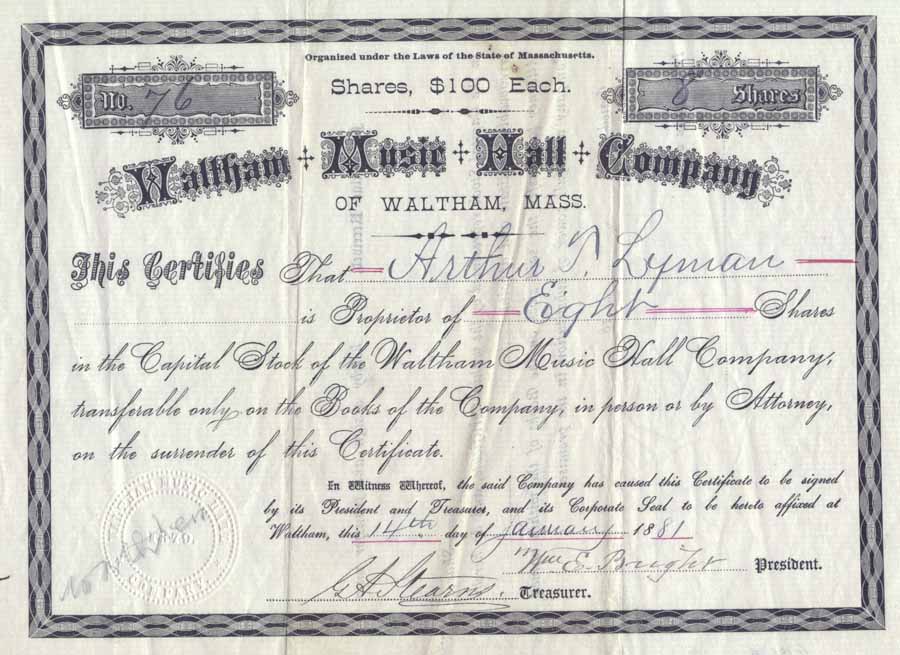 Organized under the Laws of the State of Massachusetts.
Shares, $100 Each.
No. 76
8 Shares
Waltham Music Hall Company
OF WALTHAM, MASS.
This Certifies That Arthur T. Lyman
is Proprietor of Eight Shares
in the Capital Stock of the Waltham Music Hall Company,
transferable only on the Books of the Company, in person or by Attorney,
on the surrender of this Certificate.
In Witness Whereof, the said Company has caused this Certificate to be signed
by its President and Treasurer, and its Corporate Seal to be hereto affixed at
Waltham, this 14th day of January 1881
Wm E. Bright President.
G A Stearns. Treasurer.